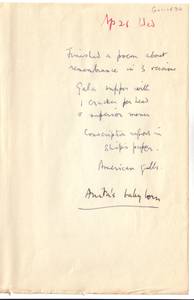 Ap 26 Wed
Finished a poem about
remembrance in 3 versions
Gala supper with
1 cracker per head
& superior menu
Conscription reported in
Ship's paper.
American Gulls.
Anita's baby born